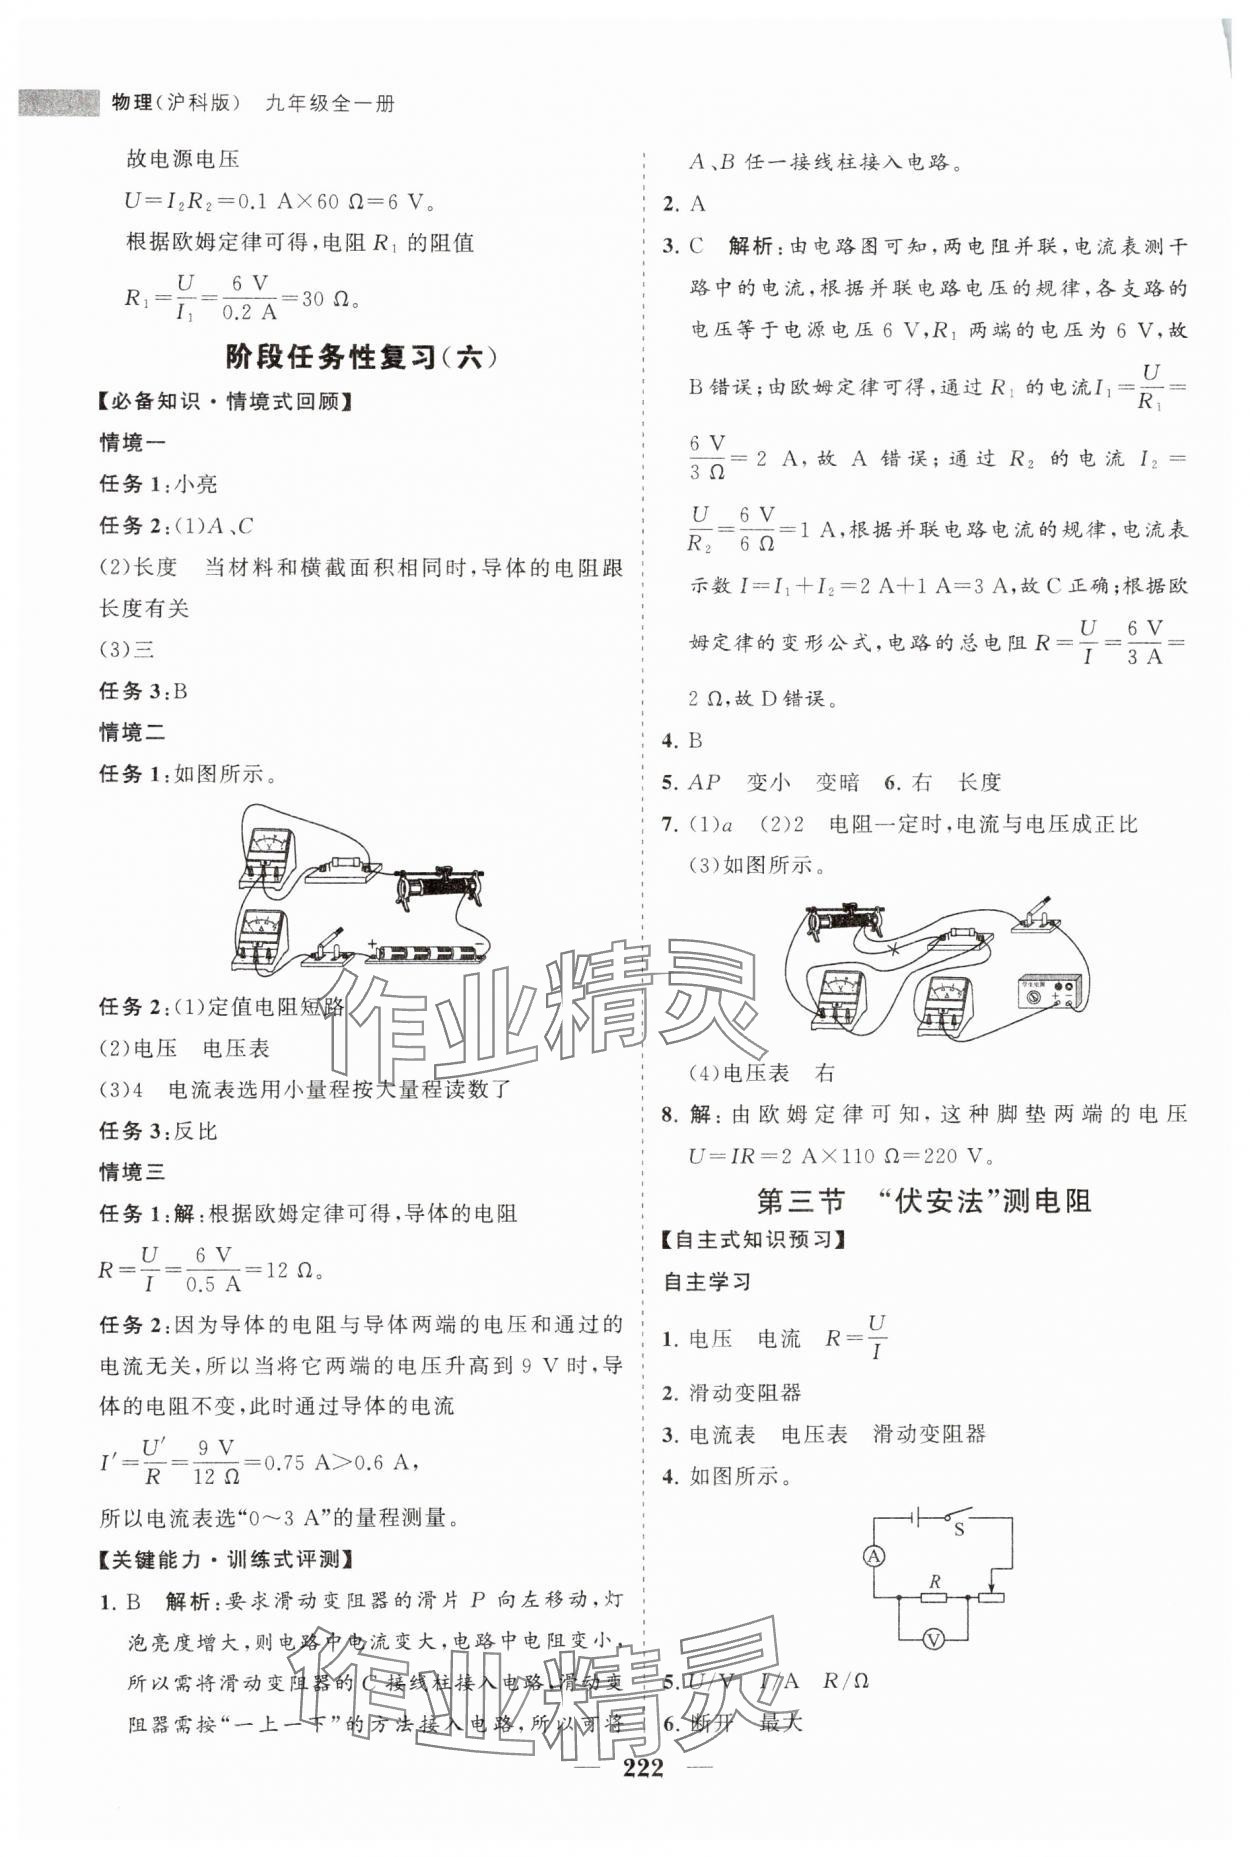 物理(沪科版) 九年级全一册
故电源电压
U=I₂R₂=0.1 A×60 Ω=6 V。
根据欧姆定律可得,电阻 R₁ 的阻值
R₁=U/I₁=6 V/0.2 A=30 Ω。
阶段任务性复习(六)
【必备知识·情境式回顾】
情境一
任务 1:小亮
任务 2:(1)A、C
(2)长度 当材料和横截面积相同时,导体的电阻跟
长度有关
(3)三
任务 3:B
情境二
任务 1:如图所示。
任务 2:(1)定值电阻短路
(2)电压 电压表
(3)4 电流表选用小量程按大量程读数了
任务 3:反比
情境三
任务 1:解:根据欧姆定律可得,导体的电阻
R=U/I=6 V/0.5 A=12 Ω。
任务 2:因为导体的电阻与导体两端的电压和通过的
电流无关,所以当将它两端的电压升高到 9 V 时,导
体的电阻不变,此时通过导体的电流
I′=U′/R=9 V/12 Ω=0.75 A>0.6 A,
所以电流表选“0～3 A”的量程测量。
【关键能力·训练式评测】
1. B 解析:要求滑动变阻器的滑片 P 向左移动,灯
泡亮度增大,则电路中电流变大,电路中电阻变小,
所以需将滑动变阻器的 C 接线柱接入电路,滑动变
阻器需按“一上一下”的方法接入电路,所以可将
A、B 任一接线柱接入电路。
2. A
3. C 解析:由电路图可知,两电阻并联,电流表测干
路中的电流,根据并联电路电压的规律,各支路的
电压等于电源电压 6 V,R₁ 两端的电压为 6 V,故
B 错误;由欧姆定律可得,通过 R₁ 的电流 I₁=U/R₁=
6 V/3 Ω=2 A,故 A 错误;通过 R₂ 的电流 I₂=
U/R₂=6 V/6 Ω=1 A,根据并联电路电流的规律,电流表
示数 I=I₁+I₂=2 A+1 A=3 A,故 C 正确;根据欧
姆定律的变形公式,电路的总电阻 R=U/I=6 V/3 A=
2 Ω,故 D 错误。
4. B
5. AP 变小 变暗 6. 右 长度
7. (1)a (2)2 电阻一定时,电流与电压成正比
(3)如图所示。
学生电源
(4)电压表 右
8. 解:由欧姆定律可知,这种脚垫两端的电压
U=IR=2 A×110 Ω=220 V。
第三节 “伏安法”测电阻
【自主式知识预习】
自主学习
1. 电压 电流 R=U/I
2. 滑动变阻器
3. 电流表 电压表 滑动变阻器
4. 如图所示。
S
A
R
V
5. U/V I/A R/Ω
6. 断开 最大
222
作业精灵
作业精灵